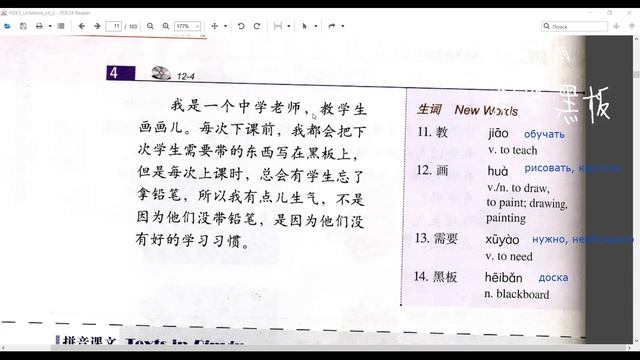 HSK3_Uchebnik_ch_2 - PDF24 Reader
11 / 103
177%
Поиск
4
12-4
我是一个中学老师，教学生
画画儿。每次下课前，我都会把下
次学生需要带的东西写在黑板上，
但是每次上课时，总会有学生忘了
拿铅笔，所以我有点儿生气，不是
因为他们没带铅笔，是因为他们没
有好的学习习惯。
黑板
生词 New Words
11. 教 jiāo обучать
v. to teach
12. 画 huà рисовать,
v./n. to draw,
to paint; drawing,
painting
13. 需要 xūyào нужно,
v. to need
14. 黑板 hēibǎn доска
n. blackboard
拼音课文 Texts in Pinyin